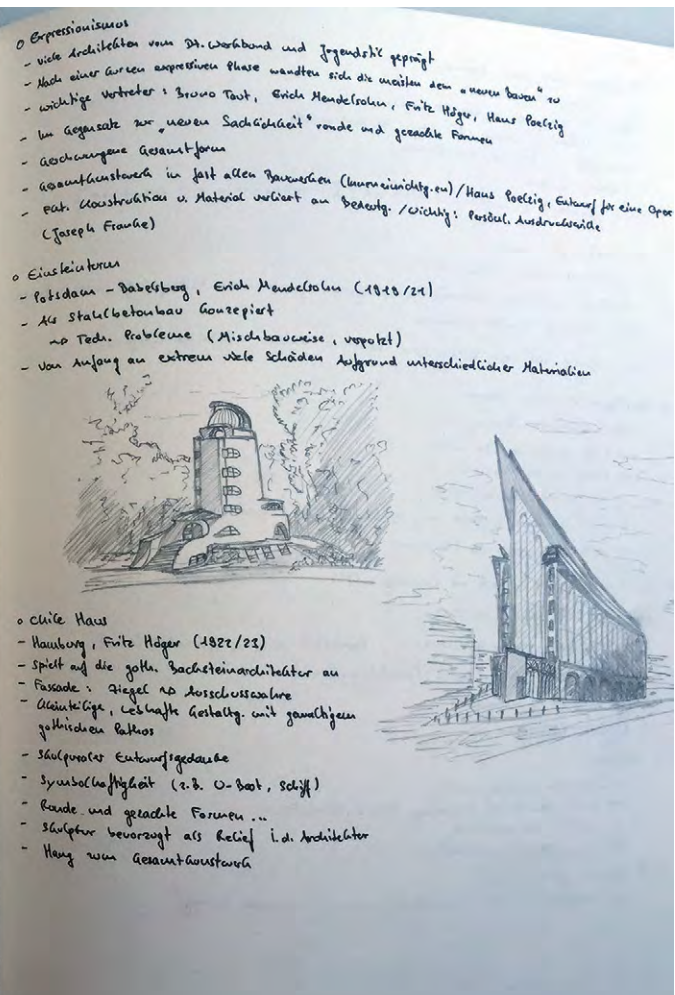 o Expressionismus
- viele Architekten vom Dt. Werkbund und Jugendstil geprägt
- Nach einer kurzen expressiven Phase wandten sich die meisten dem „neuen Bauen" zu
- wichtige Vertreter: Bruno Taut, Erich Mendelsohn, Fritz Höger, Hans Poelzig
- Im Gegensatz zur „neuen Sachlichkeit" runde und gezackte Formen
- Geschwungene Gesamtform
- Gesamtkunstwerk in fast allen Bauwerken (Inneneinrichtg.en) / Hans Poelzig, Entwurf für eine Oper
- Konstruktion u. Material verliert an Bedeutg. / wichtig: Persönl. Ausdrucksweise
(Joseph Franke)
o Einsteinturm
- Potsdam - Babelsberg, Erich Mendelsohn (1919/21)
- Als Stahlbetonbau konzepiert
→ Tech. Probleme (Mischbauweise, verputzt)
- Von Anfang an extrem viele Schäden Aufgrund unterschiedlicher Materialien
o Chile Haus
- Hamburg, Fritz Höger (1922/23)
- Spielt auf die goth. Backsteinarchitektur an
- Fassade: Ziegel → Ausschussware
- Kleinteilige, lebhafte Gestaltg. mit gewaltigem
gothischen Pathos
- Skulpuraler Entwurfsgedanke
- Symbolhaftigkeit (z.B. U-Boot, Schiff)
- Runde und gezackte Formen ...
- Skulptur bevorzugt als Relief i.d. Architektur
- Hang zum Gesamtkunstwerk